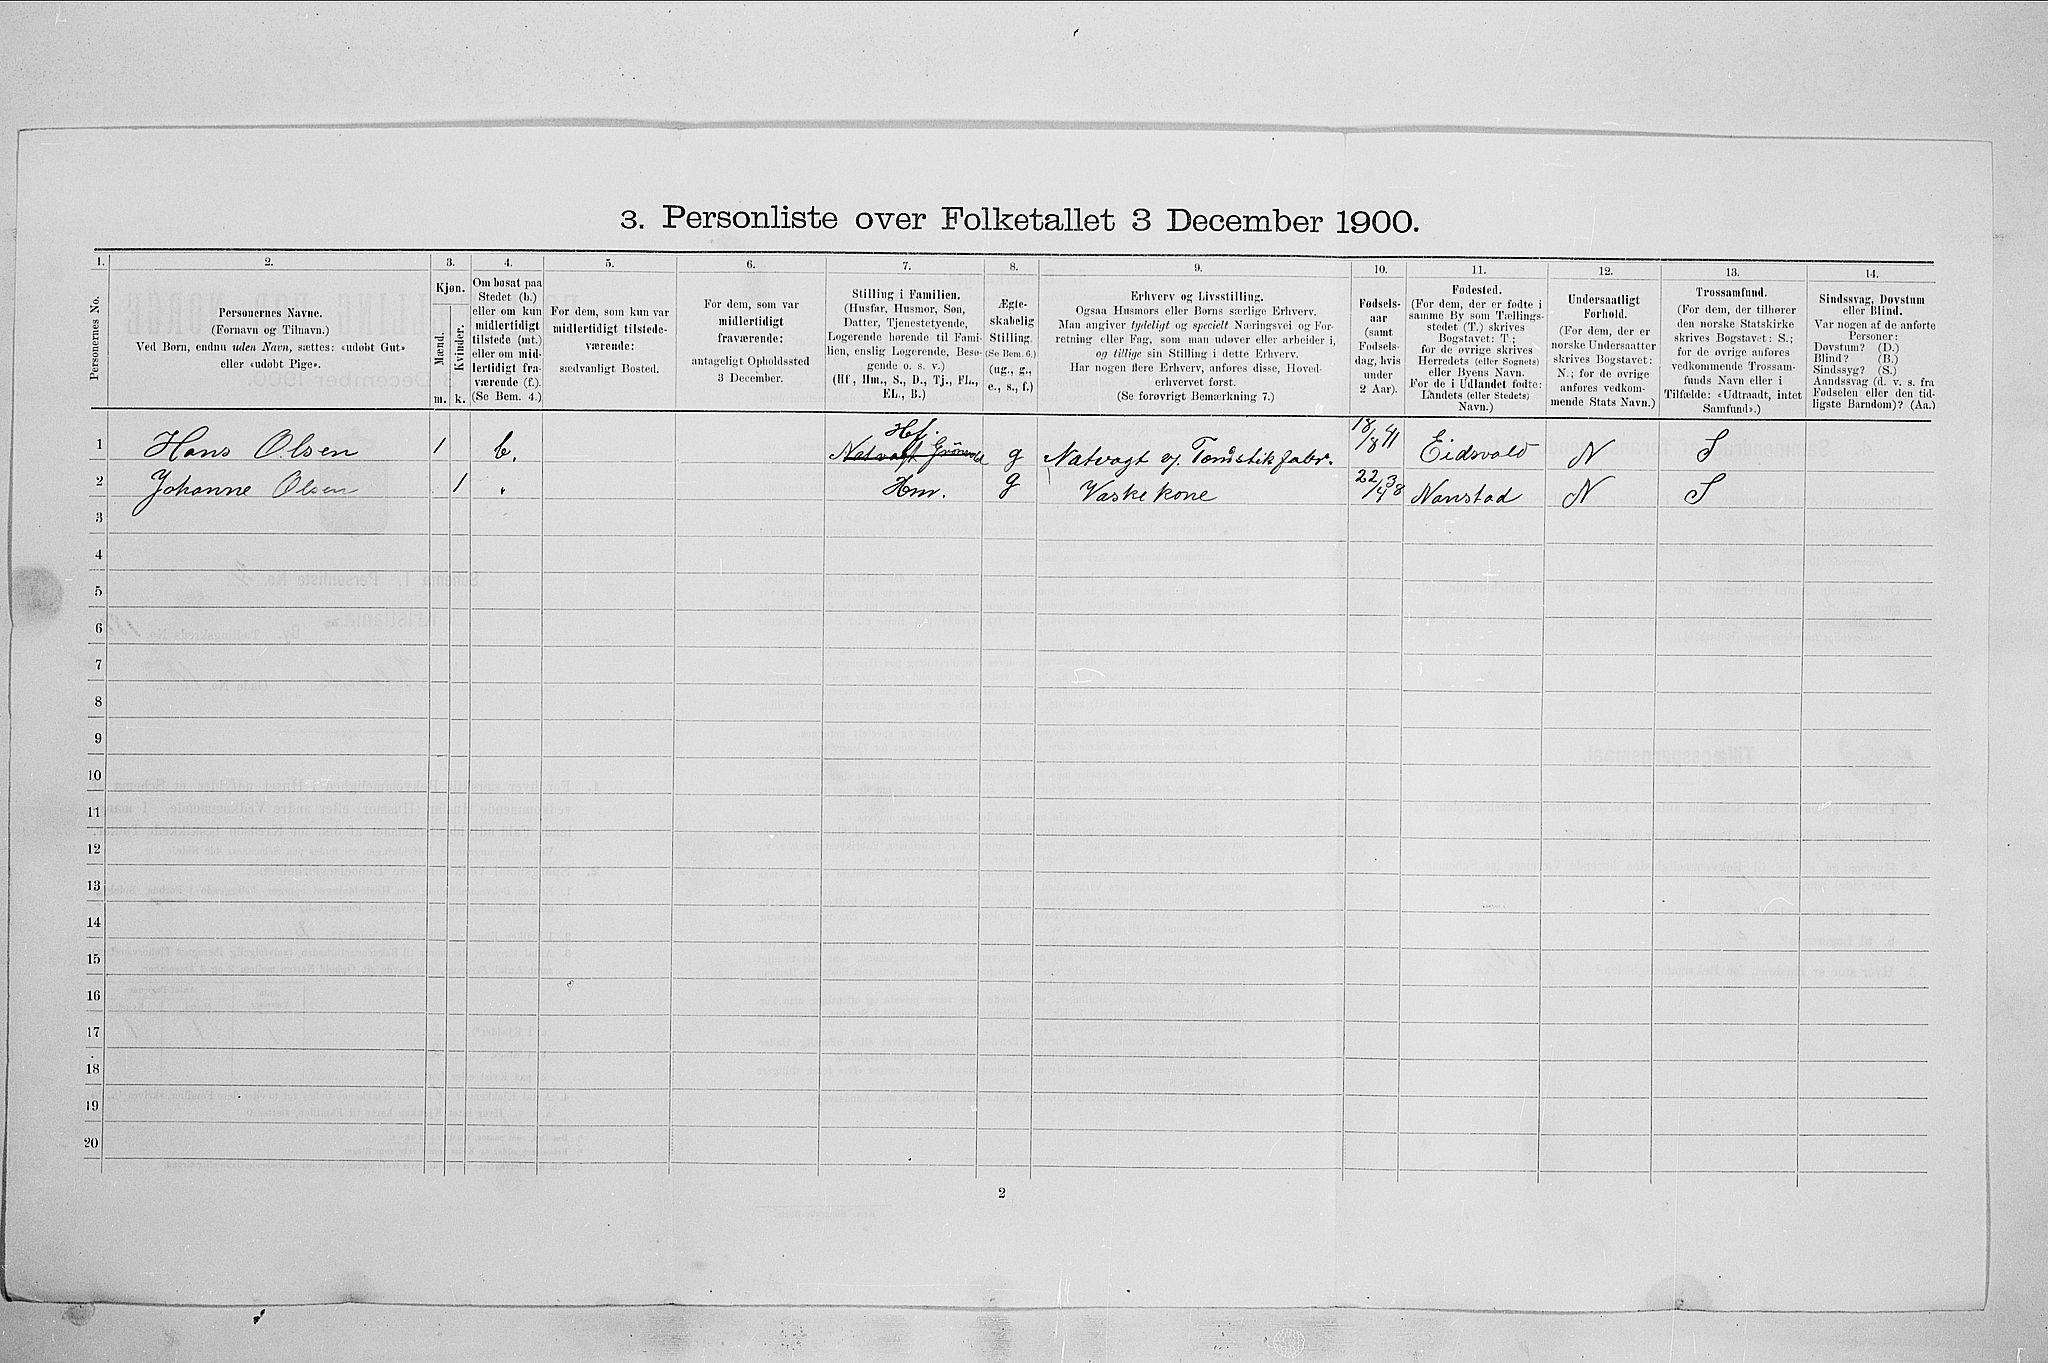 3. Personliste over Folketallet 3 December 1900.
1. 2. 3. 4. 5. 6. 7. 8. 9. 10. 11. 12. 13. 14.
Personernes No.
Personernes Navne.
(Fornavn og Tilnavn.)
Ved Børn, endnu uden Navn, sættes: «udøbt Gut»
eller «udøbt Pige».
Kjøn.
Mænd.
Kvinder.
m. k.
Om bosat paa
Stedet (b.)
eller om kun
midlertidigt
tilstede (mt.)
eller om mid-
lertidigt fra-
værende (f.).
(Se Bem. 4.)
For dem, som kun var
midlertidigt tilstede-
værende:
sædvanligt Bosted.
For dem, som var
midlertidigt
fraværende:
antageligt Opholdssted
3 December.
Stilling i Familien.
(Husfar, Husmor, Søn,
Datter, Tjenestetyende,
Logerende hørende til Fami-
lien, enslig Logerende, Besø-
gende o. s. v.)
(Hf., Hm., S., D., Tj., FL.,
EL., B.)
Ægte-
skabelig
Stilling.
(Se Bem. 6.)
(ug., g.,
e., s., f.)
Erhverv og Livsstilling.
Ogsaa Husmors eller Børns særlige Erhverv.
Man angiver tydeligt og specielt Næringsvei og For-
retning eller Fag, som man udøver eller arbeider i,
og tillige sin Stilling i dette Erhverv.
Har nogen flere Erhverv, anføres disse, Hoved-
erhvervet først.
(Se forøvrigt Bemærkning 7.)
Fødsels-
aar
(samt
Fødsels-
dag, hvis
under
2 Aar).
Fødested.
(For dem, der er fødte i
samme By som Tællings-
stedet (T.) skrives
Bogstavet: T.;
for de øvrige skrives
Herredets (eller Sognets)
eller Byens Navn.
For de i Udlandet fødte:
Landets (eller Stedets)
Navn.)
Undersaatligt
Forhold.
(For dem, der er
norske Undersaatter
skrives Bogstavet:
N.; for de øvrige
anføres vedkom-
mende Stats Navn.)
Trossamfund.
(For dem, der tilhører
den norske Statskirke
skrives Bogstavet: S.;
for de øvrige anføres
vedkommende Trossam-
funds Navn eller i
Tilfælde: «Udtraadt, intet
Samfund».)
Sindssvag, Døvstum
eller Blind.
Var nogen af de anførte
Personer:
Døvstum? (D.)
Blind? (B.)
Sindssyg? (S.)
Aandssvag (d. v. s. fra
Fødselen eller den tid-
ligste Barndom)? (Aa.)
Hf.
1 Hans Olsen 1 b. g Natvagt v. Tændstikfabr. 18/8 41 Eidsvold N S
2 Johanne Olsen 1 " Hm. g Vaskekone 22/4 38 Nanstad N S
3
4
5
6
7
8
9
10
11
12
13
14
15
16
17
18
19
20
2